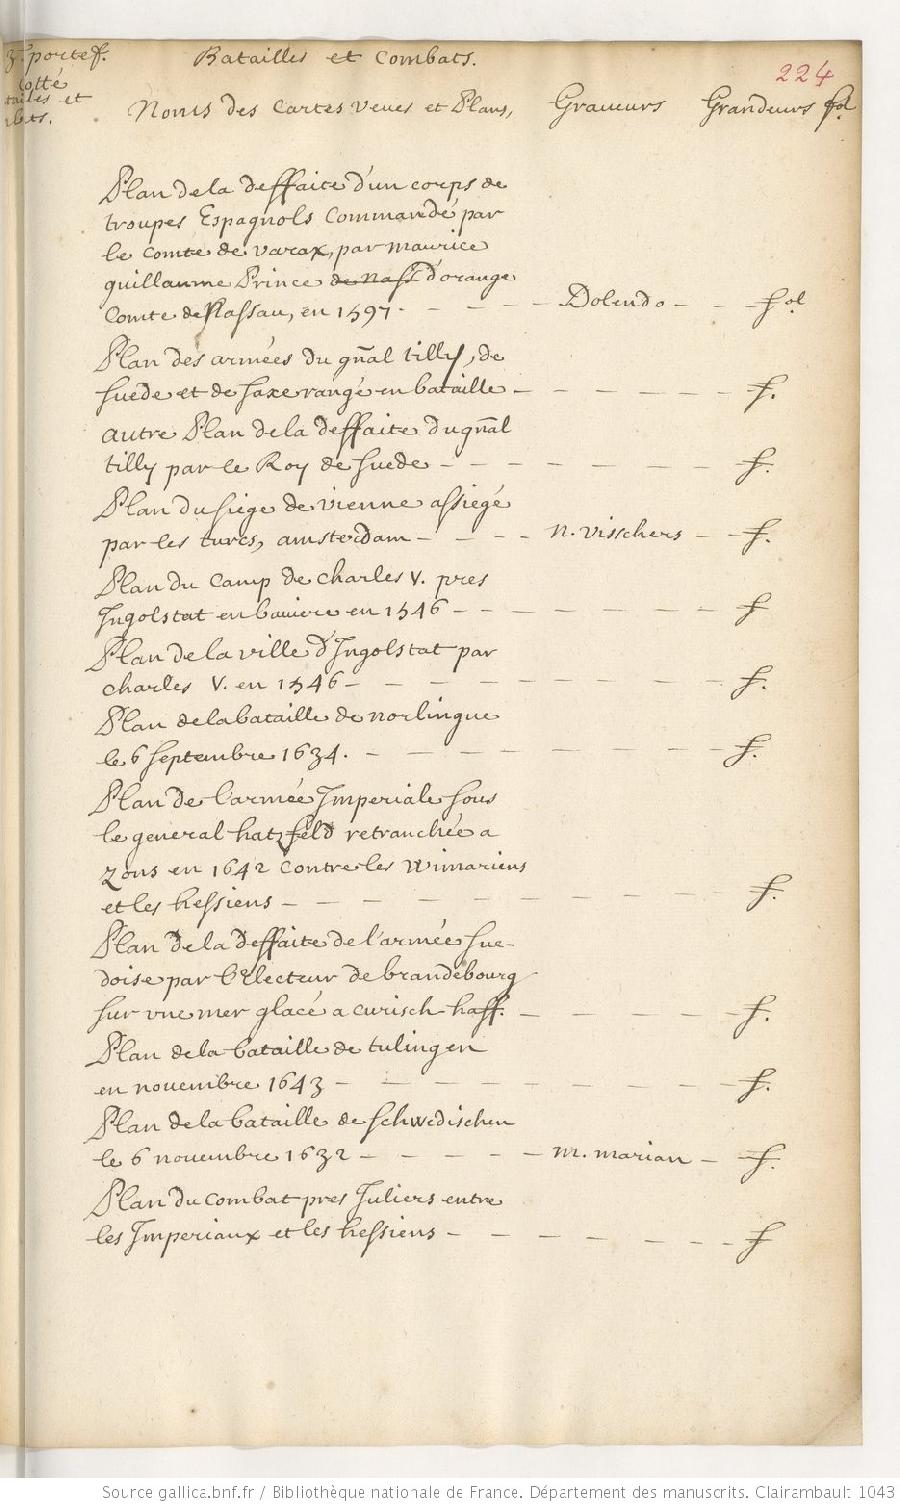 3.e portef.
Batailles et Combats.
224
cotté
tailes et
Noms des Cartes veues et Plans, Graueurs Grandeurs fol
Plan de la deffaite d'un corps de
troupes Espagnols Commandé par
le Comte de varax, par maurice
guillaume Prince de Nass d'orange
Comte de Nassau, en 1597. - - - - Dolendo - - fol
Plan des armées du gñal tilly, de
suede et de saxe rangé en bataille - - - - - - f.
autre Plan de la deffaite du gñal
tilly par le Roy de suede - - - - - - - f.
Plan du siége de vienne assiegé
par les turcs, amsterdam - - - - n. visschers - - f.
Plan du Camp de charles v. pres
Ingolstat en bauiere en 1546 - - - - - - - f
Plan de la ville d'Ingolstat par
charles V. en 1546 - - - - - - - - - f.
Plan de la bataille de norlingue
le 6 septembre 1634. - - - - - - - - f.
Plan de l'armée Imperiale sous
le general hatzfeld retranchée a
zons en 1642 Contre les Wimariens
et les hessiens - - - - - - - - - - f.
Plan de la deffaite de l'armée sue-
doise par l'Electeur de brandebourg
sur vne mer glacé a curisch-haff. - - - - - f.
Plan de la bataille de tulingen
en novembre 1643 - - - - - - - - - f.
Plan de la bataille de schwedischen
le 6 novembre 1632 - - - - - m. marian - f.
Plan du combat pres Juliers entre
les Imperiaux et les hessiens - - - - - - - f
Source gallica.bnf.fr / Bibliothèque nationale de France. Département des manuscrits. Clairambault 1043